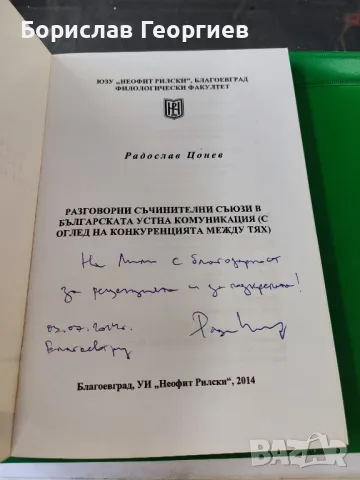 Борислав Георгиев
ЮЗУ „НЕОФИТ РИЛСКИ", БЛАГОЕВГРАД
ФИЛОЛОГИЧЕСКИ ФАКУЛТЕТ
Радослав Цонев
РАЗГОВОРНИ СЪЧИНИТЕЛНИ СЪЮЗИ В
БЪЛГАРСКАТА УСТНА КОМУНИКАЦИЯ (С
ОГЛЕД НА КОНКУРЕНЦИЯТА МЕЖДУ ТЯХ)
На Лили с благодарност
за рецензията и за подкрепата!
03.07.2014г.
Благоевград
Благоевград, УИ „Неофит Рилски", 2014
BAZAR